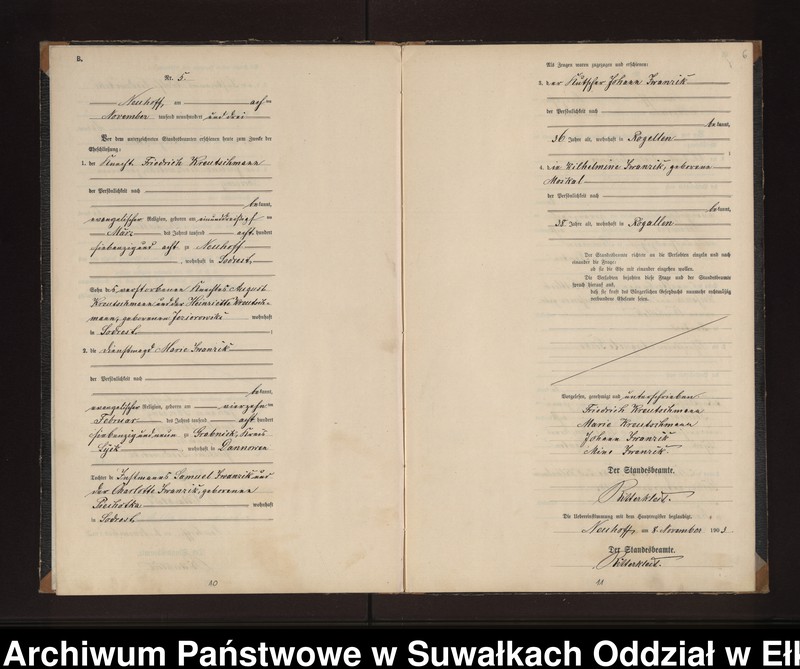 B.
Nr. 5.
Neuhoff, am acht ten
November tausend neunhundert und drei
Vor dem unterzeichneten Standesbeamten erschienen heute zum Zwecke der
Eheschließung:
1. der Knecht Friedrich Kreutschmann
der Persönlichkeit nach
be kannt,
evangelischer Religion, geboren am einunddreißigsten
März des Jahres tausend acht hundert
siebenzig und acht zu Neuhoff
, wohnhaft in Sodrest
Sohn des verstorbenen Knechtes August
Kreutschmann und der Heinriette Kreutsch-
mann, geborenen Jeziorowski wohnhaft
in Sodrest
2. die Dienstmagd Marie Iwanzik
der Persönlichkeit nach
be kannt,
evangelischer Religion, geboren am vierzehn ten
Februar des Jahres tausend acht hundert
siebenzig und neun zu Grabnick, Kreis
Lyck, wohnhaft in Dannowen
Tochter des Instmanns Samuel Iwanzik und
der Charlotte Iwanzik, geborenen
wohnhaft
in Sodrest
6
Als Zeugen waren zugezogen und erschienen:
3. der Kutscher Johann Iwanzik
der Persönlichkeit nach
be kannt,
36 Jahre alt, wohnhaft in Rogallen
;
4. die Wilhelmine Iwanzik, geborene
Moskal
der Persönlichkeit nach
be kannt,
38 Jahre alt, wohnhaft in Rogallen
Der Standesbeamte richtete an die Verlobten einzeln und nach
einander die Frage:
ob sie die Ehe mit einander eingehen wollen.
Die Verlobten bejahten diese Frage und der Standesbeamte
sprach hierauf aus,
daß sie kraft des Bürgerlichen Gesetzbuchs nunmehr rechtmäßig
verbundene Eheleute seien.
Vorgelesen, genehmigt und unterschrieben
Friedrich Kreutschmann
Marie Kreutschmann
Johann Iwanzik
Mine Iwanzik
Der Standesbeamte.
Die Uebereinstimmung mit dem Hauptregister beglaubigt,
Neuhoff, am 8. November 1903.
Der Standesbeamte.
10
11
Archiwum Państwowe w Suwałkach Oddział w Eł